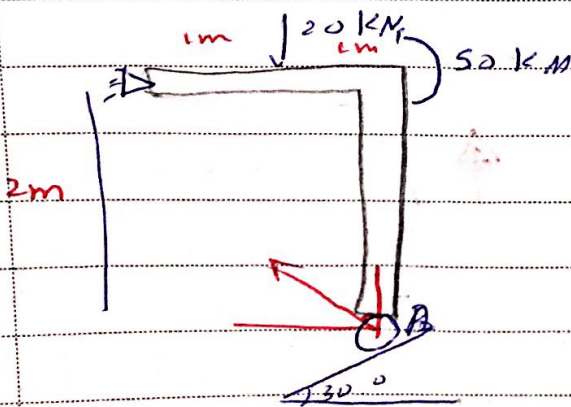 1m
20 KN
1m
50 KM
2m
A
30°